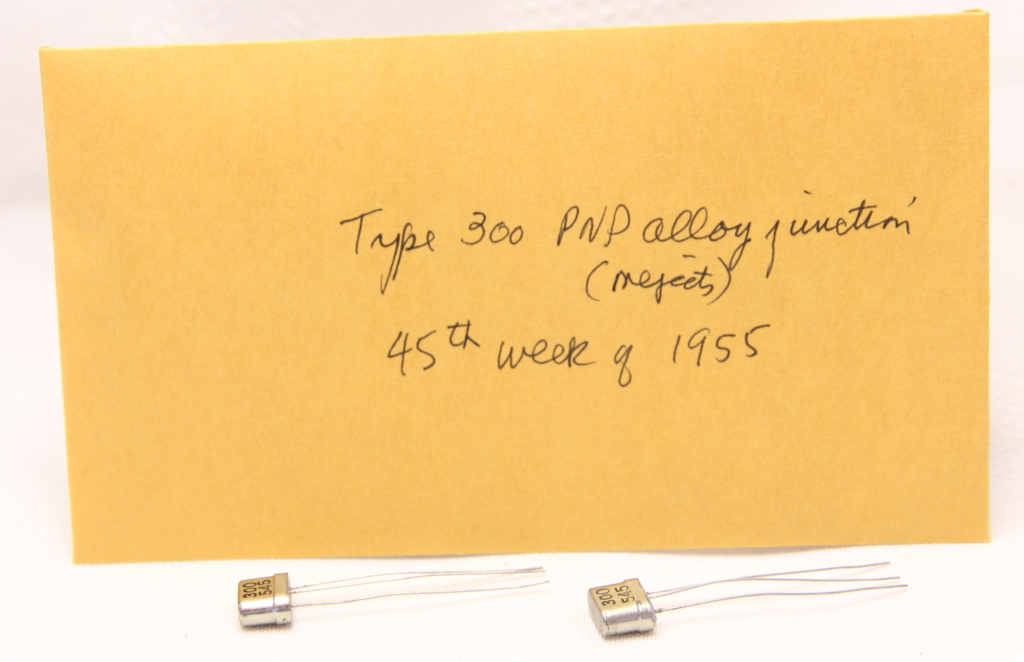 Type 300 PNP alloy junction
(rejects)
45th week of 1955
300
545
300
545